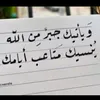 وَيأتيكَ جبرٌ مِنَ اللّه
يُنسيكَ متَاعبَ أيامكَ